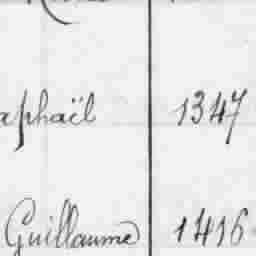 aphaël 1347
Guillaume 1416